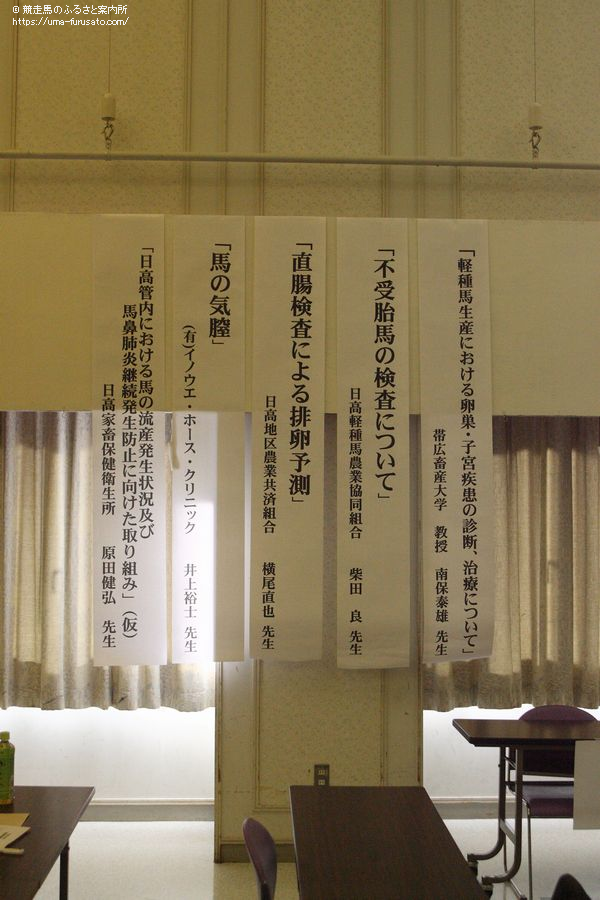 © 競走馬のふるさと案内所
https://uma-furusato.com/
「軽種馬生産における卵巣・子宮疾患の診断、治療について」
帯広畜産大学 教授 南保泰雄 先生
「不受胎馬の検査について」
日高軽種馬農業協同組合 柴田 良 先生
「直腸検査による排卵予測」
日高地区農業共済組合 横尾直也 先生
「馬の気膣」
(有)イノウエ・ホース・クリニック 井上裕士 先生
「日高管内における馬の流産発生状況及び
馬鼻肺炎継続発生防止に向けた取り組み」(仮)
日高家畜保健衛生所 原田健弘 先生